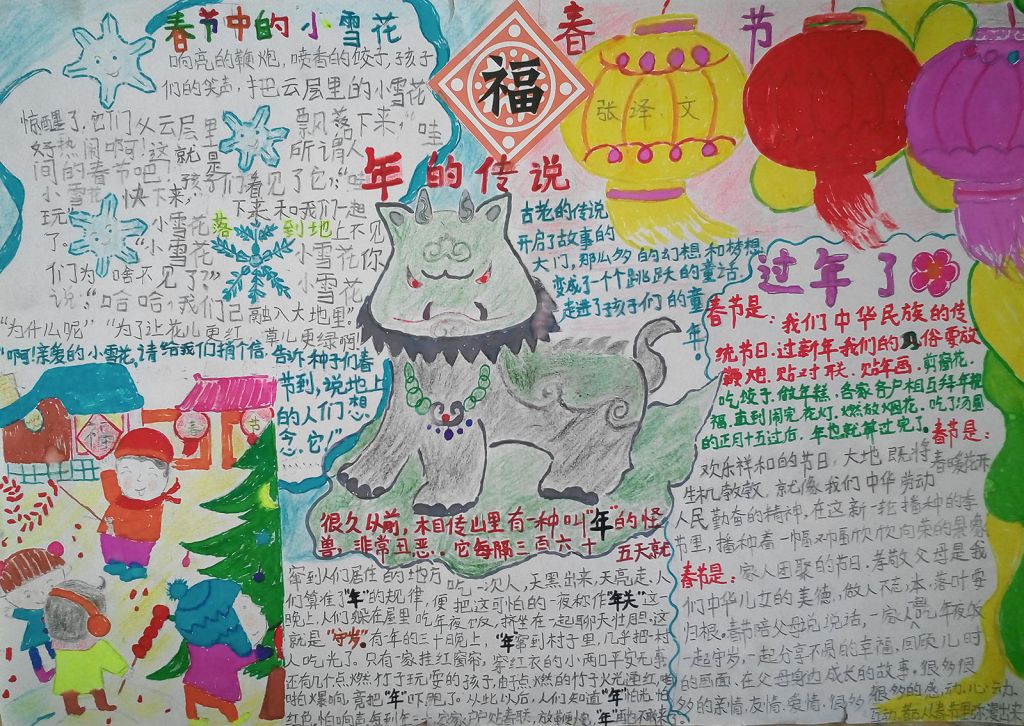 春节中的小雪花
响亮的鞭炮,喷香的饺子,孩子
们的笑声,把云层里的小雪花
惊醒了,它们从云层里飘落下来,“哇
好热闹啊!这就是所谓人
间的春节吧!”孩子们看见了它:“哇
小雪花,快下来,下来和我们一起
玩”,小雪花落到地上不见
了。“小雪花,小雪花你
们为啥不见了?”小雪花
说:“哈哈,我们已融入大地里”
“为什么呢”“为了让花儿更红,草儿更绿啊!
“啊!亲爱的小雪花,请给我们捎个信,告诉种子们春
节到,说地上
的人们想
念它!”
福
春节
张泽文
年的传说
古老的传说
开启了故事的
大门,那么多的幻想和梦想
变成了一个个跳跃的童话
走进了孩子们的童
年。
很久以前,相传山里有一种叫“年”的怪
兽,非常丑恶。它每隔三百六十五天就
窜到人们居住的地方吃一次人,天黑出来,天亮走,人
们算住了“年”的规律,便把这可怕的一夜称作“年关”这一
晚上,人们躲在屋里吃年夜饭,挤坐在一起聊天壮胆。这
就是“守岁”。有年的三十晚上,“年”窜到村子里,几乎把一村
人吃光了。只有一家挂红窗帘,穿红衣的小两口平安无事
还有几个点燃竹子玩耍的孩子,由于点燃的竹子火光通红,啪
啪爆响,竟把“年”吓跑了。从此以后,人们知道“年”怕光,怕
过年了
春节是:我们中华民族的传
统节日.过新年我们的风俗要放
鞭炮.贴对联.贴年画.剪窗花.
吃饺子.做年糕.各家各户相互拜年祝
福.直到闹完花灯.燃放烟花.吃了汤圆
的正月十五过后.年也就算过完了。
春节是:
欢乐祥和的节日,大地既将春暖花开
生机勃勃,就像我们中华劳动
人民勤奋的精神,在这新一轮播种的季
节里,播种着一幅对幅欣欣向荣的景象
春节是:家人团聚的节日,孝敬父母是我
们中华儿女的美德,做人不忘,本,落叶要
归根。春节陪父母说说话,一家人吃年夜饭
一起守岁,一起分享不同的幸福,回顾儿时
的画面、在父母身边成长的故事,很多很
多的亲情、友情、爱情,很多
很多的感动,心动
春
节
福